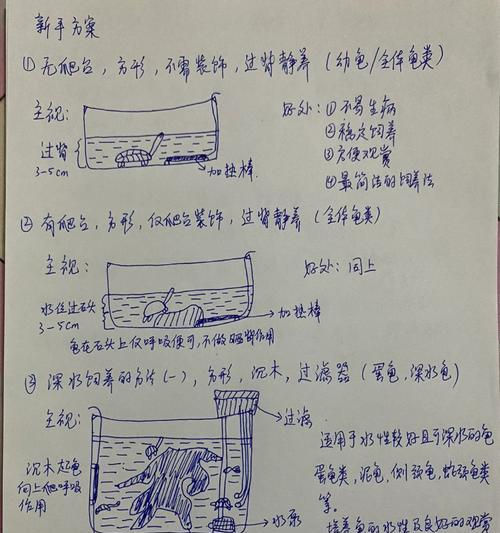 新手方案
① 无爬台，方形，不需装饰，过背静养（幼龟/全体龟类）
主视：
过背
3-5cm
加热棒
好处：① 不易生病
② 稳定饲养
③ 方便观赏
④ 最简洁的饲养法
② 有爬台，方形，仅爬台装饰，过背静养（全体龟类）
主视：
水位过石头
3-5cm
加热棒
好处：同上
龟在石头上仅呼吸使用，不做晒背作用
③ 深水饲养的方法（一），方形，沉木，过滤器（蛋龟，深水龟）
主视：
过滤
沉木起龟
向上爬呼吸
作用
水泵
适用于水性较好且可深水的龟
蛋龟类，泥龟，侧颈龟，蛇颈龟类
等。
培养龟的水性及良好的观赏